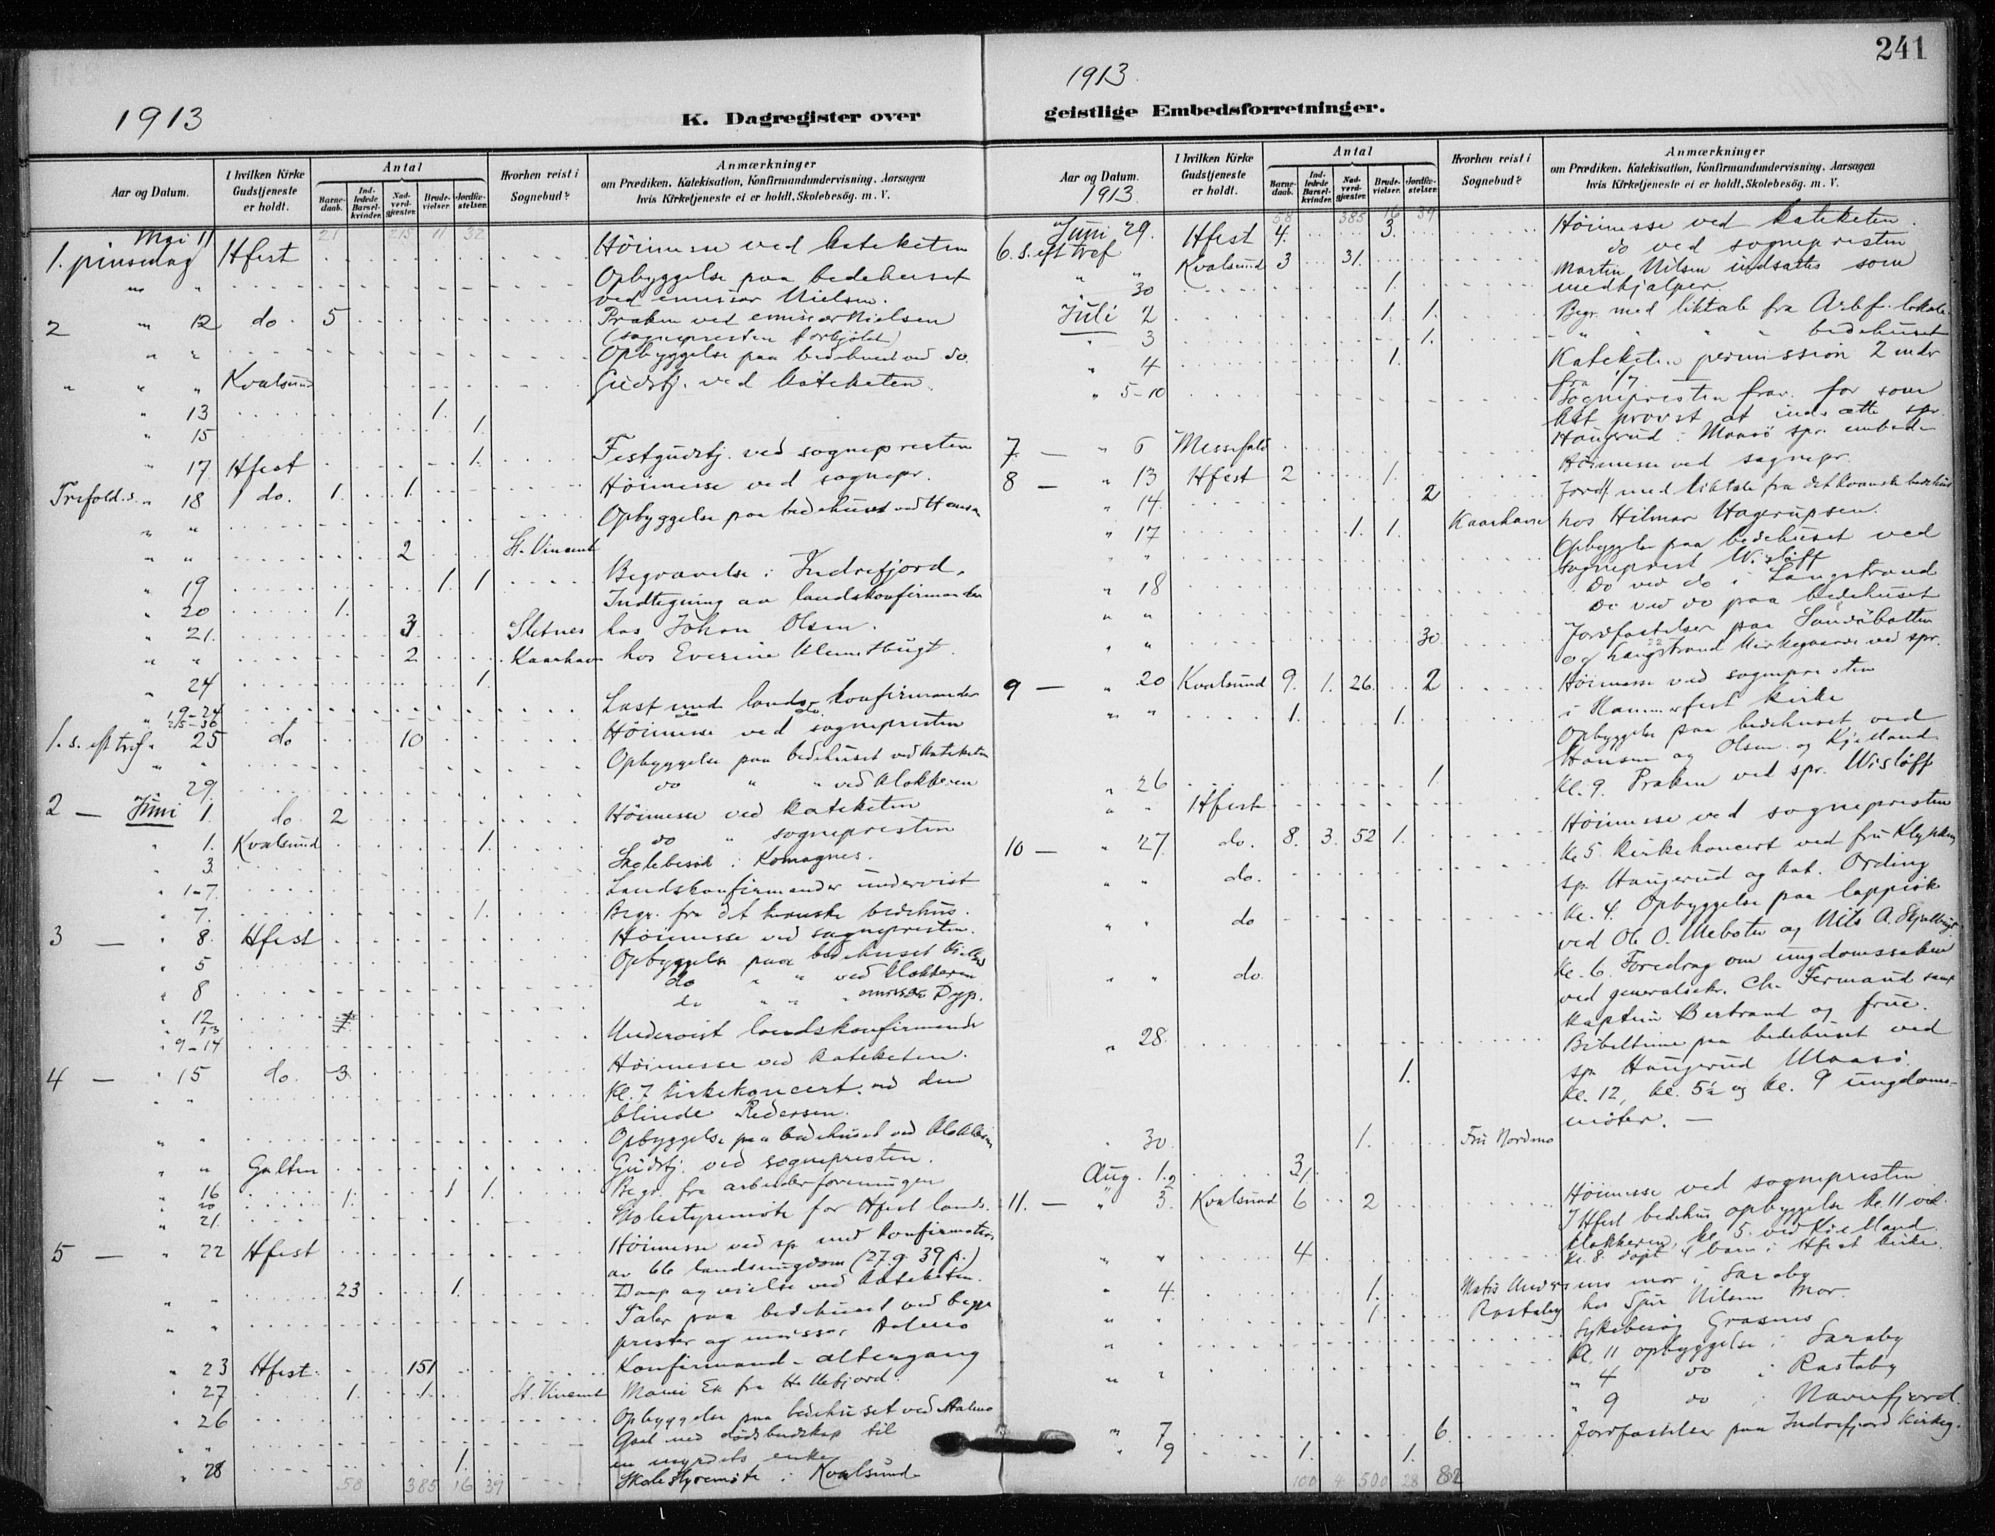 241
1913
1913
K. Dagregister over
geistlige Embedsforretninger.
Aar og Datum.
I hvilken Kirke Gudstjeneste er holdt.
Antal
Barne-daab.
Ind-ledede Barsel-kvinder.
Nad-verd-gjæster.
Brude-vielser.
Jordfæ-stelser.
Hvorhen reist i Sognebud?
Anmærkninger
om Prædiken, Katekisation, Konfirmandundervisning, Aarsagen
hvis Kirketjeneste ei er holdt, Skolebesøg. m. V.
21 215 11 32
Mai 11
1. pinsedag Hfest Höimesse ved kateketen
Opbyggelse paa bedehuset
ved emissær Nielsen.
2 " 12 do. 5 Præken ved emissær Nielsen
(sognepresten forkjølet)
" " Opbyggelse paa bedehuset ved do.
" " " Kvalsund Gudstj. ved kateketen.
" 13 1.
" 15 1
" 17 Hfest 1. Festgudstj. ved sognepresten
Trefold.s. " 18 do. 1. 1. Höimesse ved sognepr.
" " Opbyggelse paa bedehuset ved Hansen
" " 2 St. Vincent
" 19 1 1 Begravelse i Indrefjord.
" 20 1. Indtegning av landskonfirmander
" 21. 3 Sletnes hos Johan Olsen.
" " 2 Kaarhavn hos Everine Klemetbugt.
" 24 1.
" 19-24 Læst med landskonfirmander
" 25-30 do do.
1. s. eft tref. " 25 do 10 Höimesse ved sognepresten
" " Opbyggelse paa bedehuset ved kateketen
" 29 do " " ved klokkeren
2 — Juni 1. do. 2 Höimesse ved kateketen
" 1. Kvalsund 1. do " sognepresten
" 3 Skolebesøk i Komagnes.
" 1-7. Landskonfirmander undervist
" 7. 1. Begr. fra det kvænske bedehus.
3 — " 8. Hfest Höimesse ved sognepresten.
" 5 Opbyggelse paa bedehuset
" 8 do " ved klokkeren
" 12 do " " emissær Dyp.
" 13
" 9-14 Undervist landskonfirmander
4 — " 15 do. 3 Höimesse ved kateketen.
" Kl. 7 kirkekoncert ved den
blinde Pedersen.
" " Opbyggelse paa bedehuset ved
" " Galten Gudstj. ved sognepresten.
" 16 1. 1 1. Begr. fra arbeiderforeningen
" 20
" 21. Skolestyremöte for Hfest lands.
5 — " 22 Hfest Höimesse ved sp. med konfirmation
av 66 landsungdom (27 g. 39 p.)
" " 23 1. Daap og vielse ved kateketen.
" " Taler paa bedehuset ved begge
prester og emissær Holmo
" 23 Hfest. 151 Konfirmand-altergang
" 27 1. 1. St. Vincent Marie Ek fra Hellefjord.
" 26 Opbyggelse paa bedehuset ved Holmo
" " 1. Gaat med dödsbudskap til
en myrdets enke
" 28 Skolestyremöte i Kvalsund
58 385 16 39
Aar og Datum.
1913
I hvilken Kirke Gudstjeneste er holdt.
Antal
Barne-daab.
Ind-ledede Barsel-kvinder.
Nad-verd-gjæster.
Brude-vielser.
Jordfæ-stelser.
Hvorhen reist i Sognebud?
Anmærkninger
om Prædiken, Katekisation, Konfirmandundervisning, Aarsagen
hvis Kirketjeneste ei er holdt, Skolebesøg. m. V.
58 385 16 39
Juni 29. Hfest 4. 3. Höimesse ved kateketen.
6. s. eft tref Kvalsund 3 31. do ved sognepresten
Martin Nilsen indsattes som
medhjælper.
" 30 1.
Juli 2 1. 1. Begr. med liktale fra Arbf. lokale
" 3 1. " " " " bedehuset
" 4 1. Kateketen permission 2 mdr
fra 1/7.
" 5-10 Sognepresten frav. for som
kst provst at indsætte spr.
Haugerud i Maasö spr. embede
7. — " 6 Messefald
8 — " 13 Hfest 2 1. Höimesse ved sognepr.
" 14. 2 Jordf med liktale fra det kvænske bedehus
" 17 1. 1. Kaarhavn hos Hilmar Hagerupsen.
" " Opbyggelse paa bedehuset ved
sogneprest Wislöff
" 18 Do ved do i Langstrand
" " Do ved do paa bedehuset
" " 30 Jordfæstelser paa Sandöbotten
og Langstrand kirkegaarde ved spr.
9 — " 20 Kvalsund 9. 1. 26. 2 Höimesse ved sognepresten
" " 1. 1. i Hammerfest kirke
Opbyggelse paa bedehuset ved
Hansen og Olsen og Kjelland
" 26 1.
" " Hfest Kl. 9. Præken ved spr. Wislöff
10 — " 27. do. 8. 3. 52 1. Höimesse ved sognepresten
" " do. Kl 5. kirkekoncert ved fru
sp. Haugerud og kat. Ording
" " do Kl. 4. Opbyggelse paa lappisk
ved Ole O. Mebotn og Nils A.
" " do. Kl. 6. Foredrag om ungdomssaken
ved generalsekr. Chr. Fermaud samt
kaptein Bertrand og frue.
" 28. Bibeltime paa bedehuset ved
sp. Haugerud Maasö.
1. Kl. 12, kl. 5½ og kl. 9 ungdoms-
möter. —
" 30 1. Fru Nordmo
Aug. 1. 3
2 1.
11. — " 3. Kvalsund 6 2 Höimesse ved sognepresten
I Hfest bedehus opbyggelse kl. 11 ved
klokkeren, kl. 5. ved Kjelland
" " 4 Kl. 8. döpt 4 barn i Hfest kirke.
" 4. 1. Matis Anders ens mor i Saraby
" " 1. Rastaby hos Sjur Nilsens mor.
" " Sykebesög Grasnes
" " Kl. 11 opbyggelse i Saraby
" 4 do i Rastaby
" 9 do i Navnefjord.
" 7 6. Jordfæstelser paa Indrefjord kirkeg.
" 9 1. 1.
100 4 500 28 82